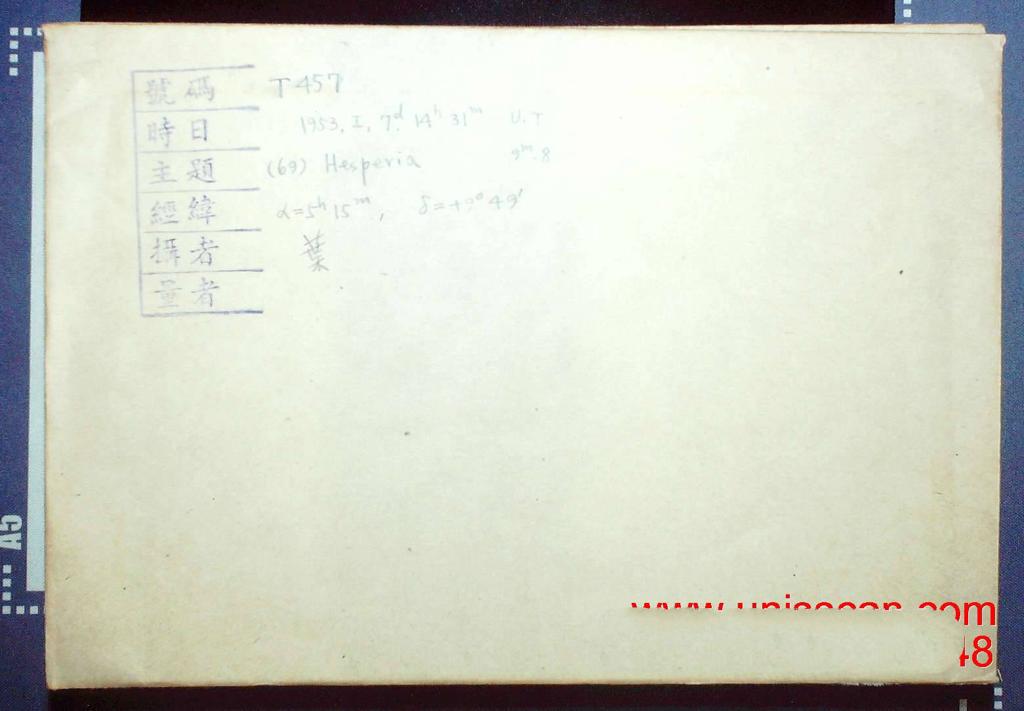 號碼 T457
時日 1953, I, 7d 14h 31m U.T
主題 (69) Hesperia 9m.8
經緯 α=5h 15m, δ=+9° 49'
攝者 葉
量者
A5
com
48